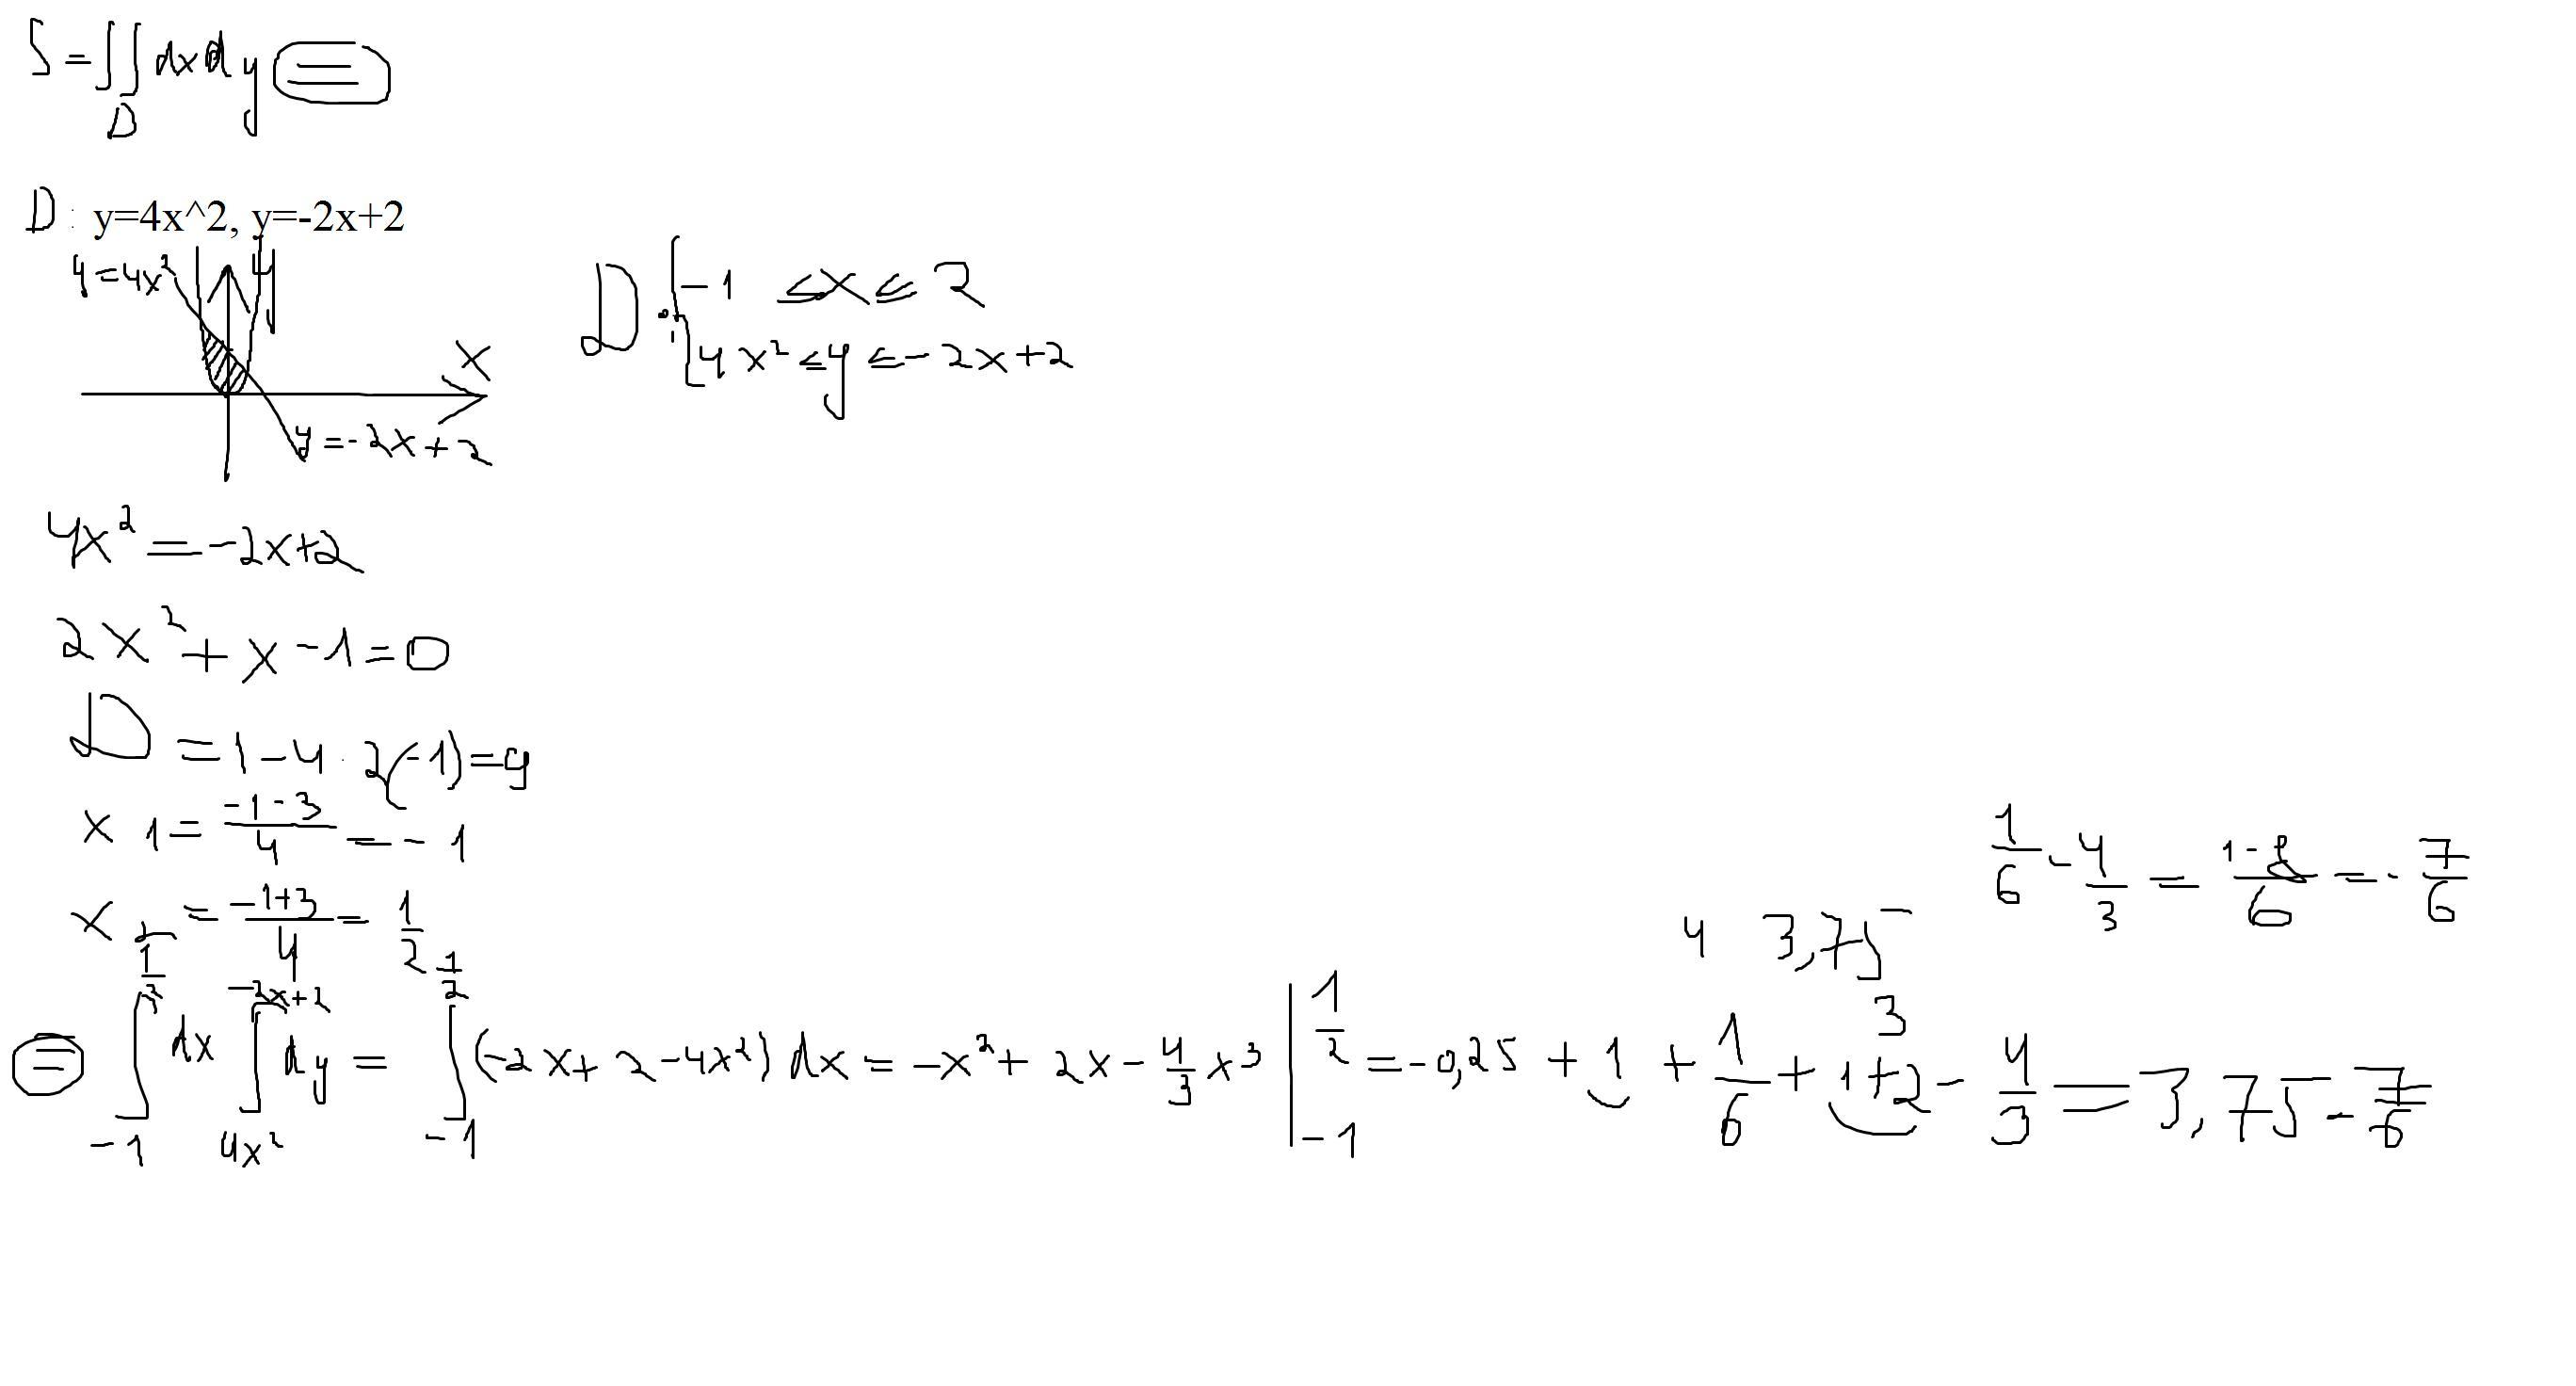 S = ∫∫ dxdy =
D
D : y=4x^2, y=-2x+2
y=4x² y
x
y=-2x+2
D: { -1 ≤ x ≤ 2
4x² ≤ y ≤ -2x+2
4x² = -2x+2
2x² + x - 1 = 0
D = 1 - 4 · 2(-1) = 9
x 1 = \frac{-1-3}{4} = -1
x 2 = \frac{-1+3}{4} = \frac{1}{2}
\frac{1}{6} - \frac{4}{3} = \frac{1-8}{6} = -\frac{7}{6}
4 3,75
3
= ∫_{-1}^{\frac{1}{2}} dx ∫_{4x²}^{-2x+2} dy = ∫_{-1}^{\frac{1}{2}} (-2x+2-4x²) dx = -x² + 2x - \frac{4}{3} x³ |_{-1}^{\frac{1}{2}} = -0,25 + 1 + \frac{1}{6} + 1+2 - \frac{4}{3} = 3,75 - \frac{7}{6}